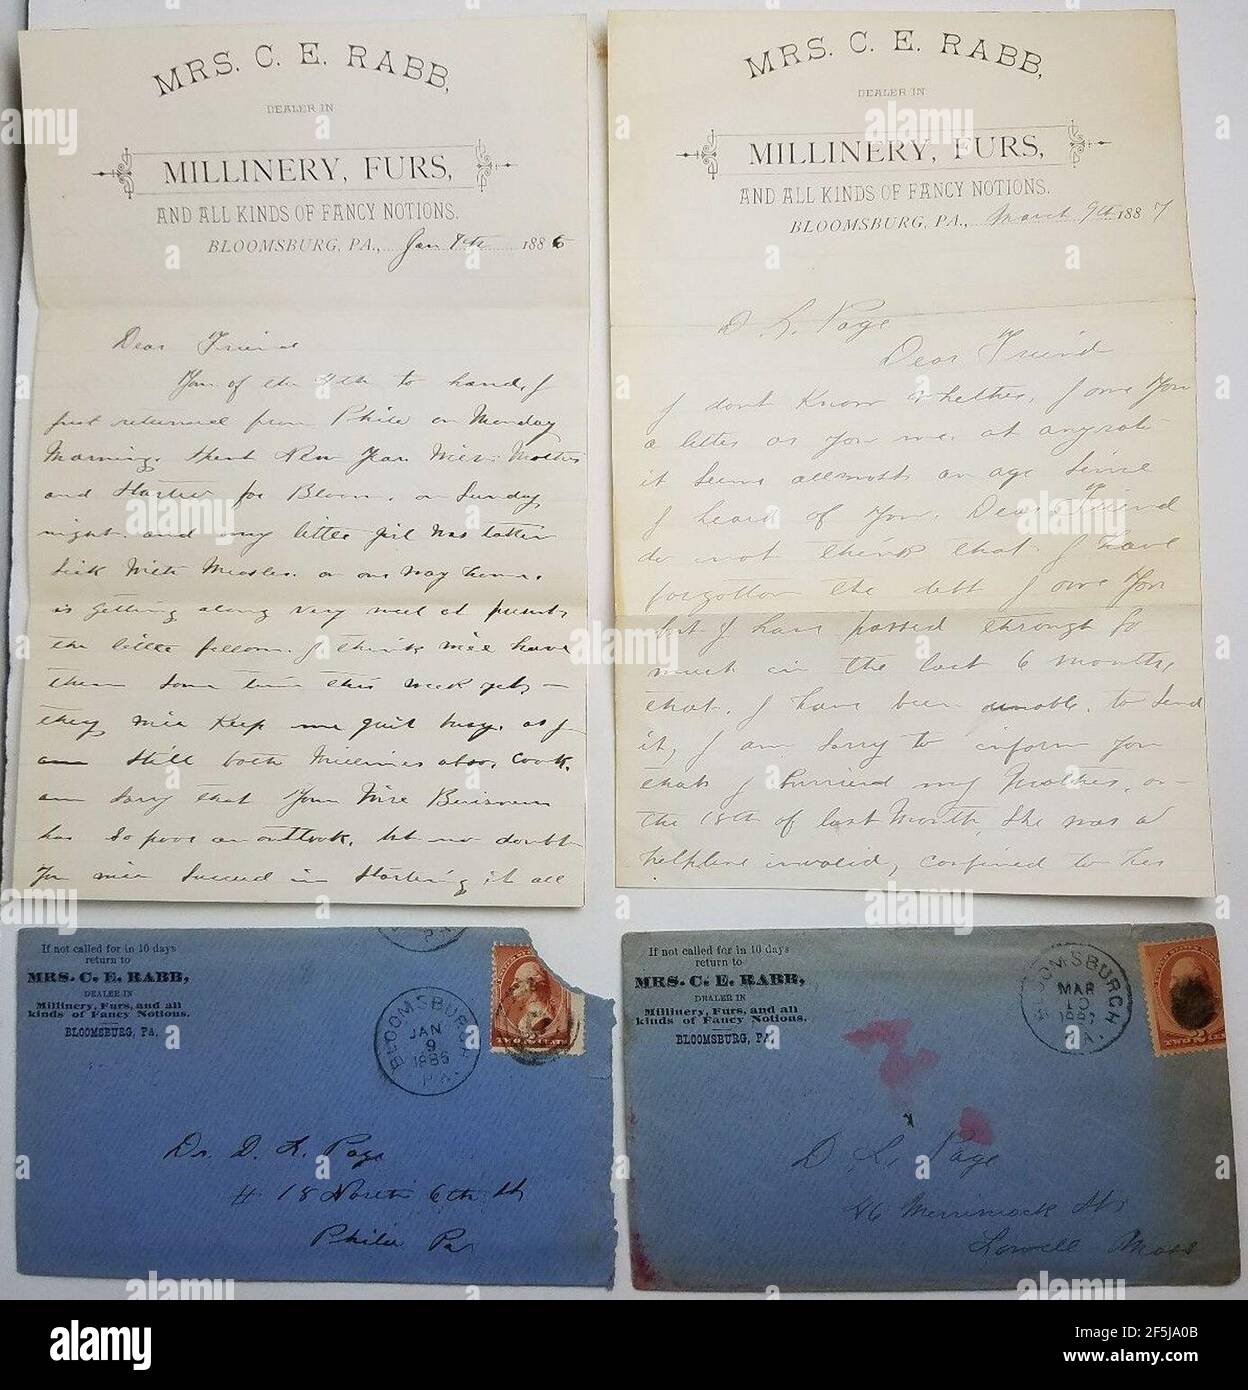 MRS. C. E. RABB,
DEALER IN
MILLINERY, FURS,
AND ALL KINDS OF FANCY NOTIONS.
BLOOMSBURG, PA., Jan 188
Dear Friend
of the to hand, I
just returned from Phila on Monday
Morning. Spent New Year With Mother
and Started for Bloom. on Sunday
night. and my little girl was taken
Sick With Measles. on our way home.
is getting along very well at present,
the little fellow. I think will have
them Some time this week yet,
they will keep me quit busy. as I
am Still both Milliner also, Cook.
am Sorry that Your Wire Buisness
has So poor an outlook, but no doubt
You will Succeed in Starting it all
MRS. C. E. RABB,
DEALER IN
MILLINERY, FURS,
AND ALL KINDS OF FANCY NOTIONS.
BLOOMSBURG, PA., March 9th 1887
D L. Page
Dear Friend
I dont Know Whether, I owe You
a letter or You me. at any rate
it Seems allmost an age Since
I heard of You. Dear Friend
do not think that I have
forgotton the debt I owe You
but I have passed through So
much in the last 6 months,
that. I have been unable. to Send
it, I am Sorry to inform You
that I burried my Mother, on
the 18th of last Month, She was a
helpless invalid, confined to her
If not called for in 10 days
return to
MRS. C. E. RABB,
DEALER IN
Millinery, Furs, and all
kinds of Fancy Notions.
BLOOMSBURG, PA.
PA.
BLOOMSBURGH
JAN
9
1886
PA.
Dr. D. L. Page
# 18 North 6th St
Phila Pa
If not called for in 10 days
return to
MRS. C. E. RABB,
DEALER IN
Millinery, Furs, and all
kinds of Fancy Notions.
BLOOMSBURG, PA.
BLOOMSBURGH
MAR
10
1887
PA.
D L. Page
46 Merrimack St.
Lowell Mass
alamy
alamy
Image ID: 2F5JA0B
www.alamy.com